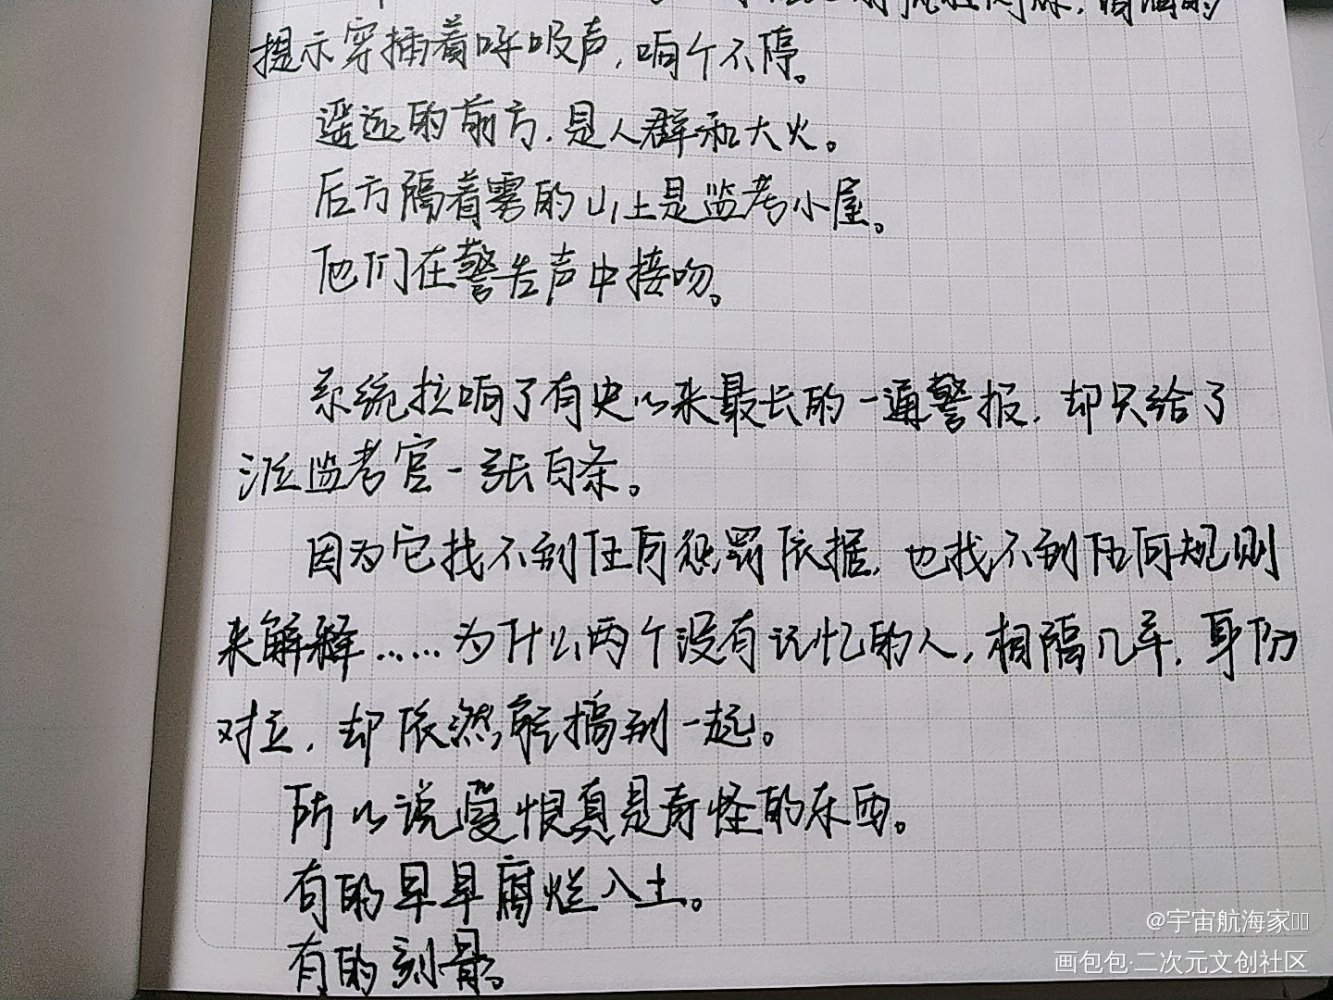 提示穿插着呼吸声,响个不停。
遥远的前方,是人群和大火。
后方隔着雾的山上是监考小屋。
他们在警告声中接吻。
系统拉响了有史以来最长的一通警报,却只给了
这位监考官一张白条。
因为它找不到任何惩罚依据,也找不到任何规则
来解释……为什么两个没有记忆的人,相隔几年,身份
对立,却依然能搞到一起。
所以说爱恨真是奇怪的东西。
有的早早腐烂入土。
有的刻骨。
@宇宙航海家
画包包·二次元文创社区